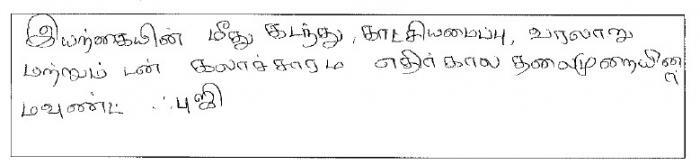 இயற்கையின் மீது கடந்து, காட்சியமைப்பு, வரலாறு
மற்றும் டன் கலாச்சாரம எதிர்கால தலைமுறையின்
மவுண்ட் ஃபுஜி